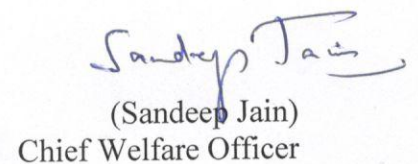 Sandeep Jain
(Sandeep Jain)
Chief Welfare Officer